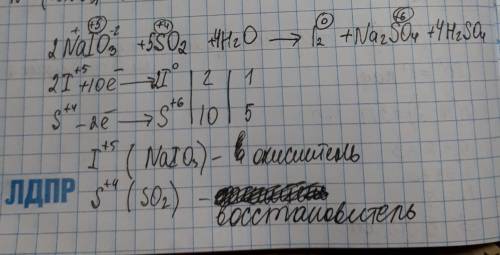 2NaIO₃ + 5SO₂ + 4H₂O → I₂ + Na₂SO₄ + 4H₂SO₄
+ +5 -2 +4 0 +6
2I⁺⁵ + 10e⁻ → 2I⁰ | 2 | 1
S⁺⁴ - 2e⁻ → S⁺⁶ | 10 | 5
I⁺⁵ (NaIO₃) - окислитель
ЛДПР
S⁺⁴ (SO₂) -
восстановитель